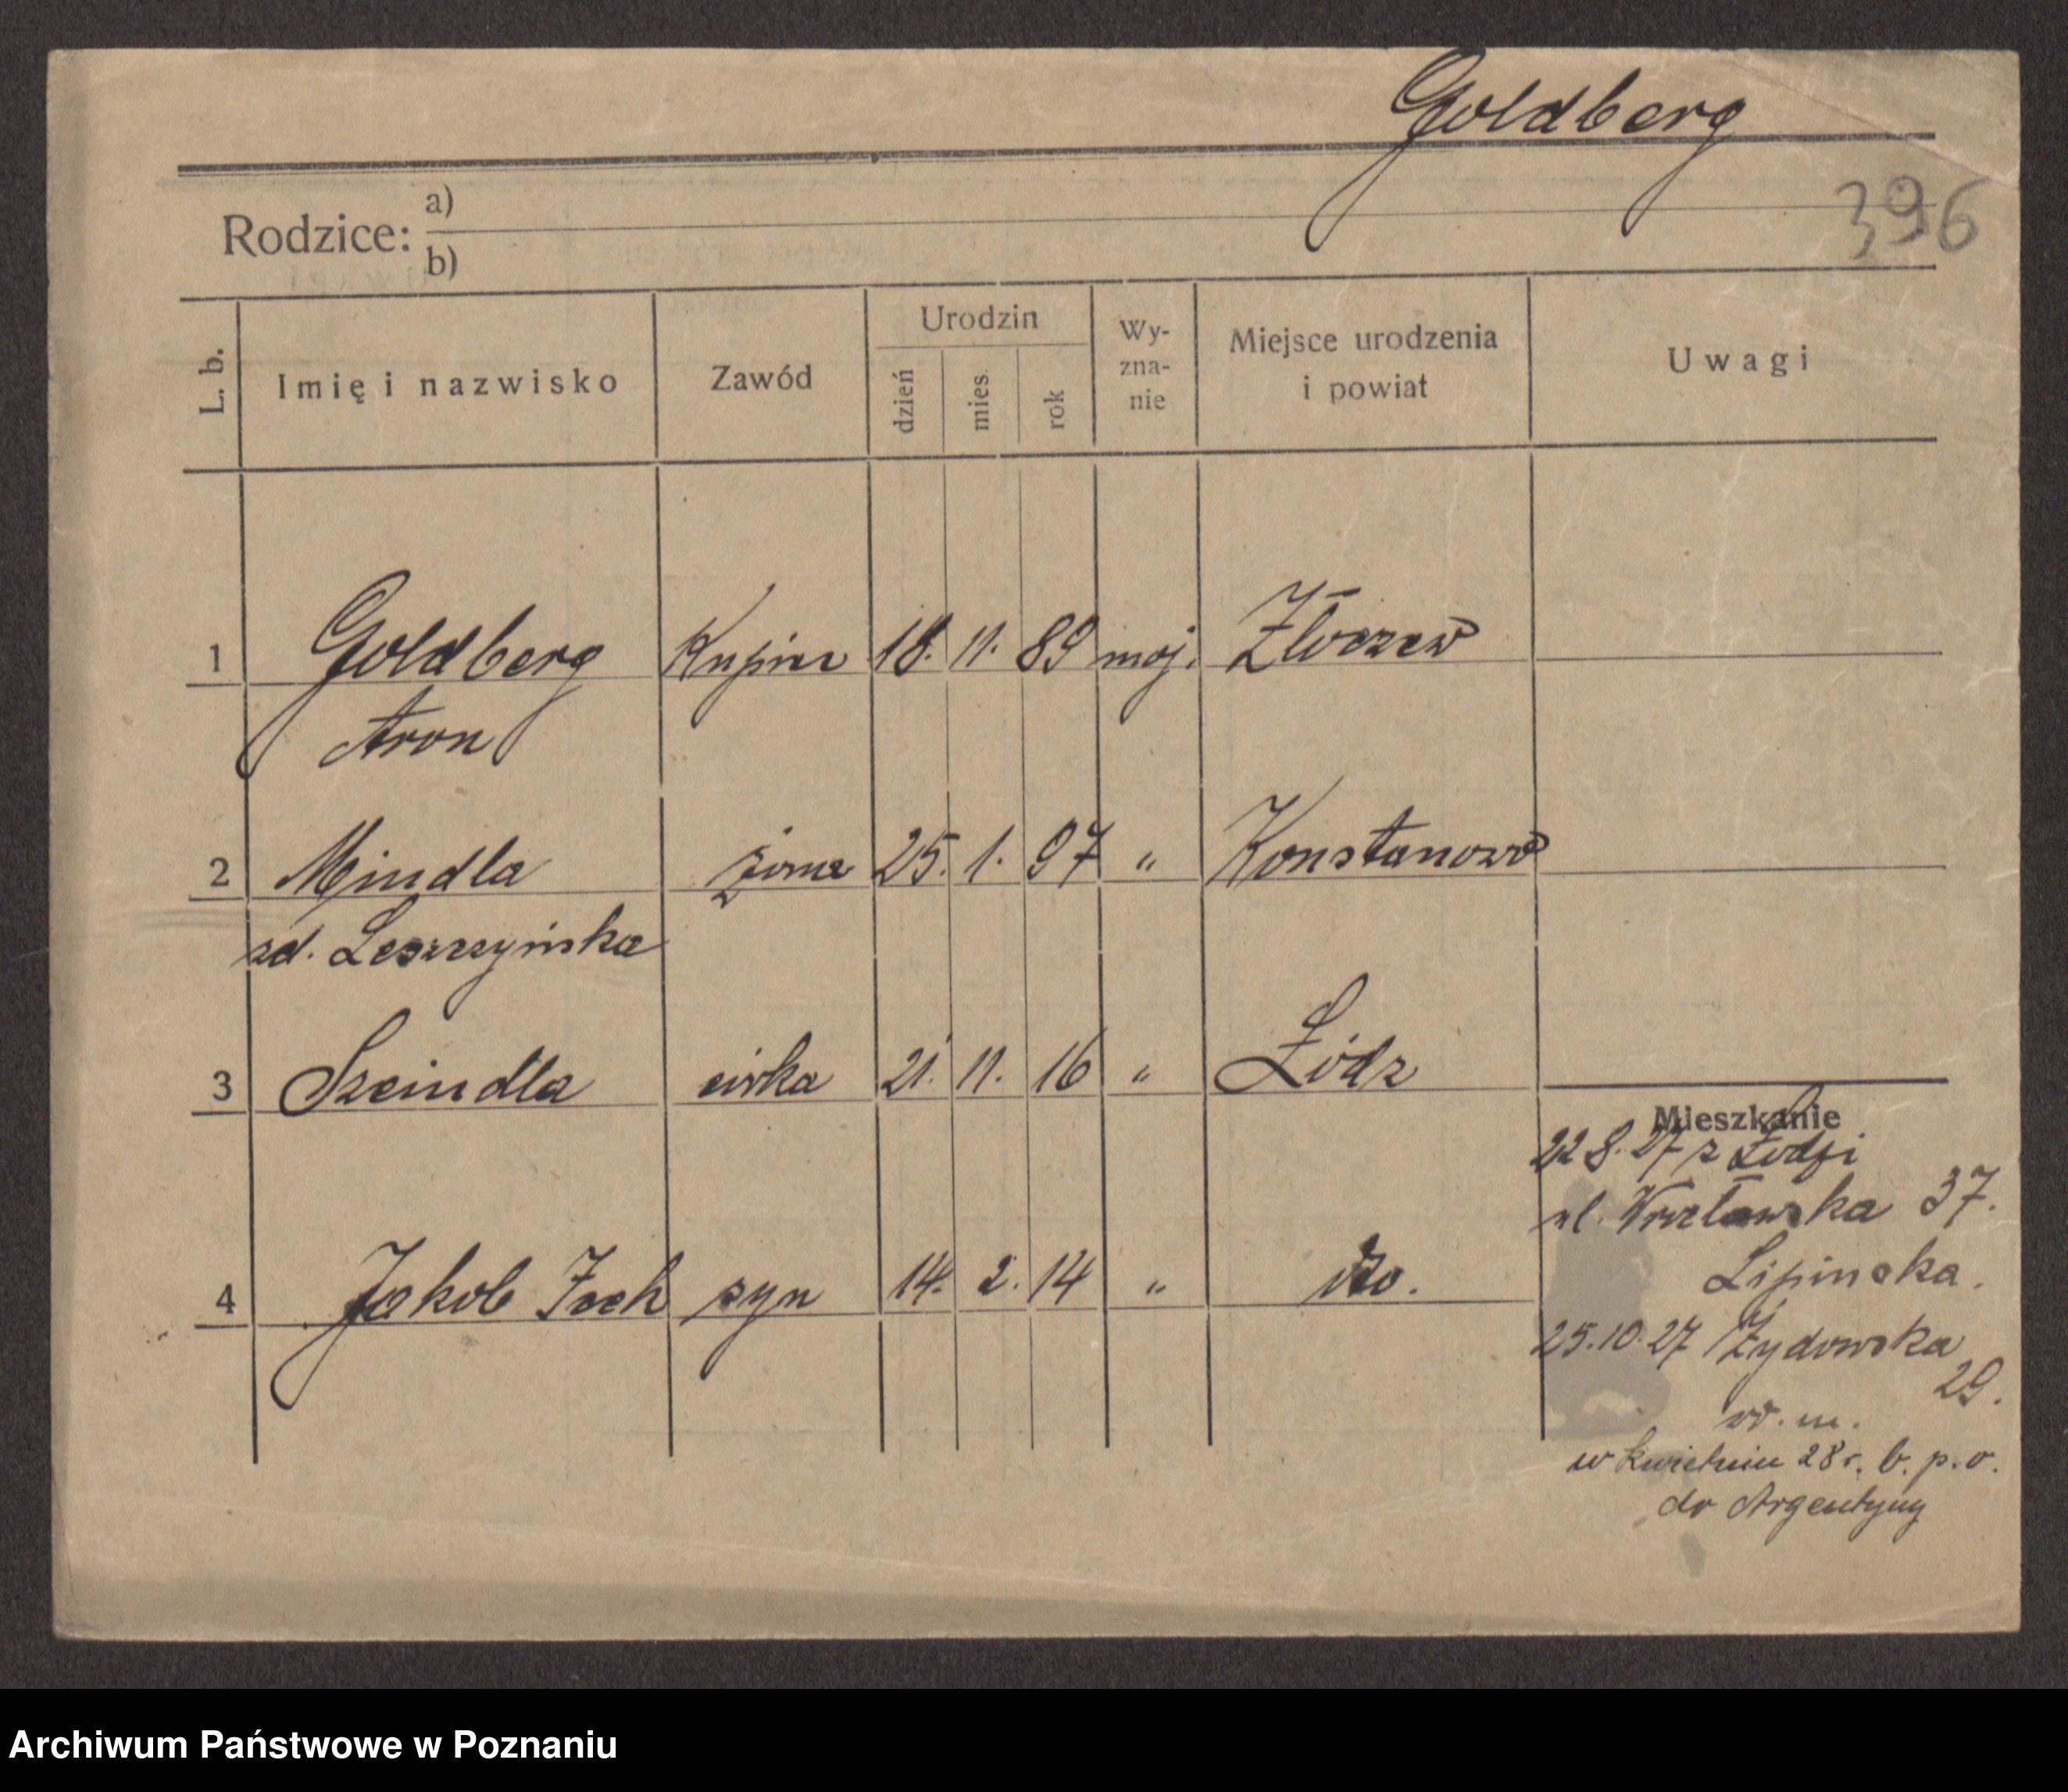 Goldberg
396
Rodzice: a)
b)
L. b. Imię i nazwisko Zawód Urodzin dzień mies. rok Wy-zna-nie Miejsce urodzenia i powiat Uwagi
1 Goldberg Kupiec 18. 11. 89 moj. Złoczew
Aron
2 Mindla żona 25. 1. 97 " Konstanowo
zd. Leszczyńska
3 Szeindla córka 21. 11. 16 " Łódz
Mieszkanie
22 8. 27 z Łodzi
ul. Wrocławska 37.
4 Jakob Icek syn 14. 2. 14 " dto.
Lipinska.
25.10.27 Żydowska
29.
w. m.
w kwietniu 28 r. b. p. o.
do Argentyny
Archiwum Państwowe w Poznaniu